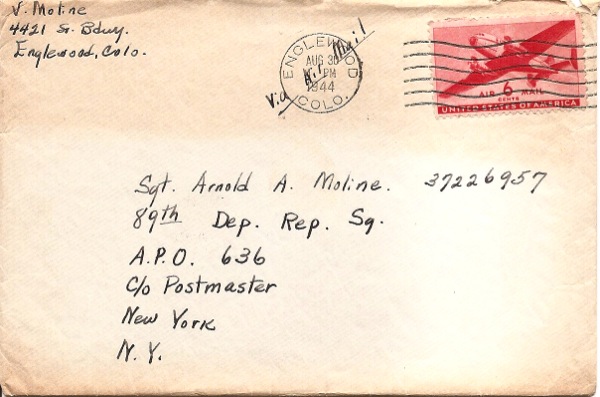 V. Moline
4421 So. Bdwy.
Englewood, Colo.
Via Air Mail
ENGLEWOOD
AUG 30
PM
1944
COLO.
AIR 6 MAIL
CENTS
UNITED STATES OF AMERICA
Sgt. Arnold A. Moline. 37226957
89th Dep. Rep. Sq.
A.P.O. 636
c/o Postmaster
New York
N.Y.